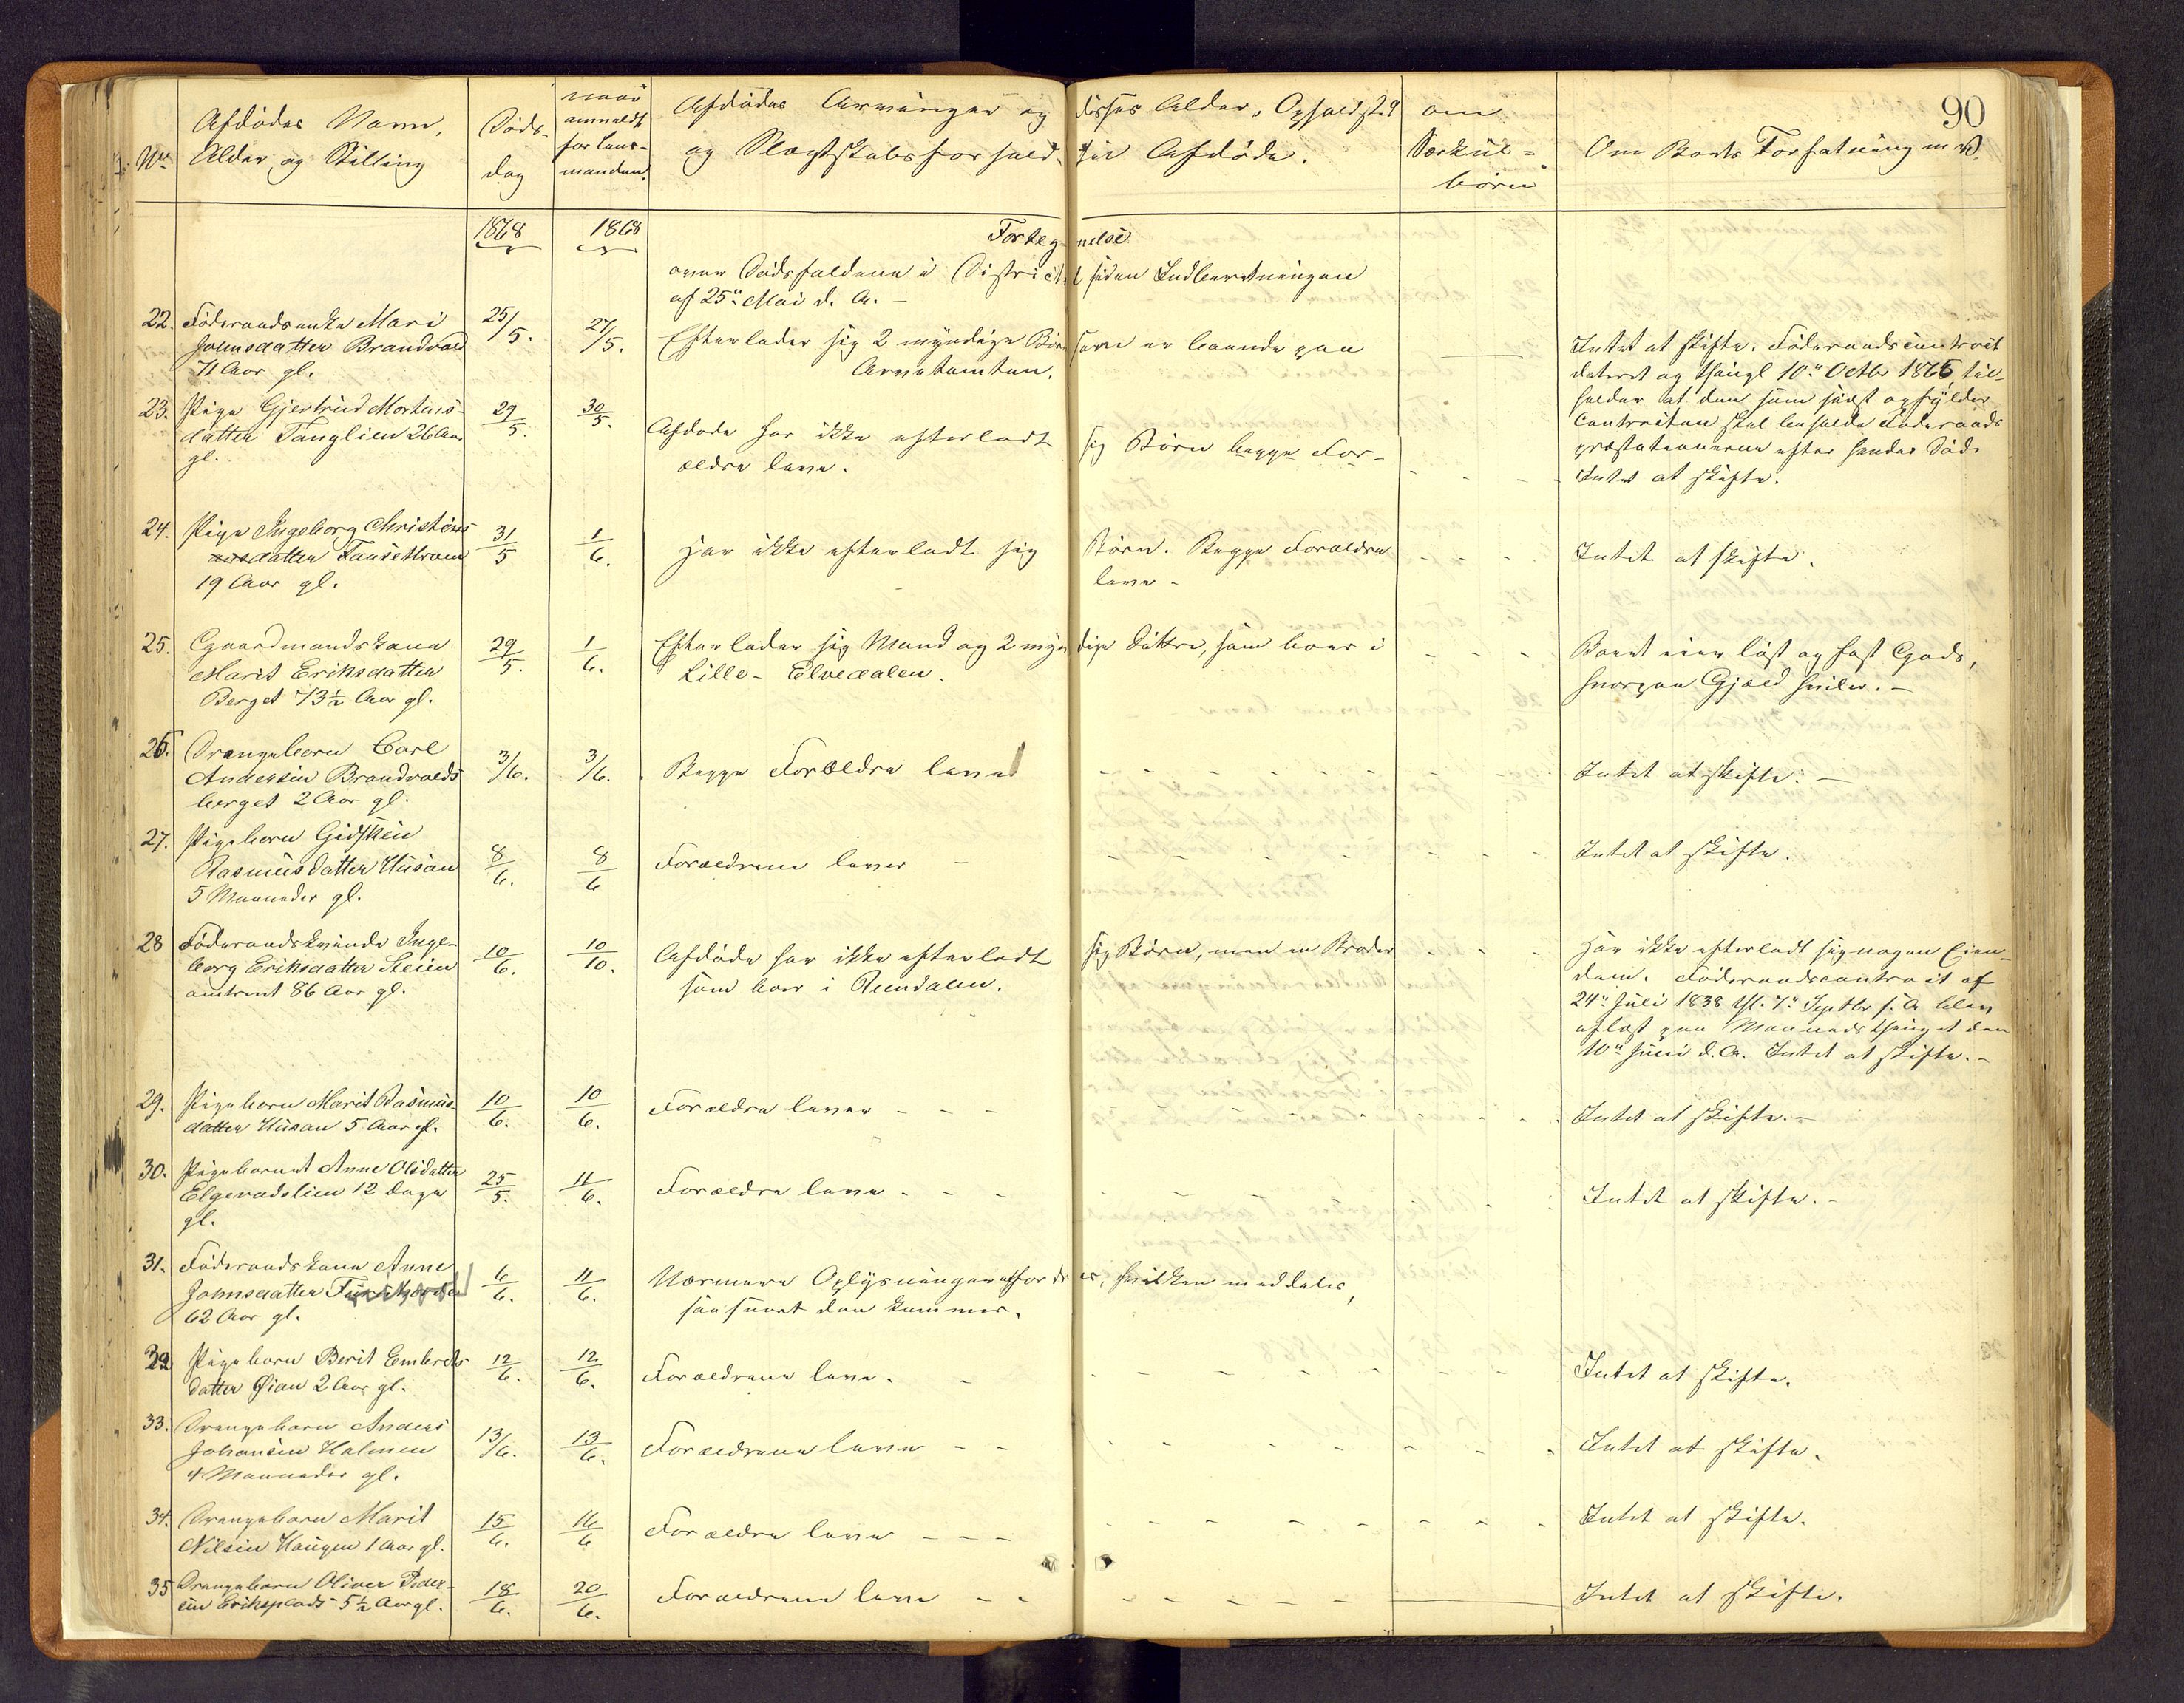 90
No
Afdødes Navn,
Alder og Stilling
Døds-
dag
naar
anmeldt
for Lens-
manden.
Afdødes Arvinger og disses Alder, Opholdsted
og Slægtskabsforhold til Afdøde.
om
Særkul-
børn
Om Boets Forfatning m. V.
1868
1868
Fortegnelse
over Dødsfaldene i Districtet siden Indberetningen
af 25de Mai d. A. -
22. Föderaadsenke Mari
Johnsdatter Brandvold
71 Aar gl.
25/5.
27/5.
Efterlader sig 2 myndige Børn som er boende paa
Arnetomten.
Intet at skifte. Föderaadscontract
dateret og thingl 10de Octbr 1866 til-
holder at den som sidst opfylder
Contracten skal beholde Föderaads
præstationerne efter hendes Död.
23. Pige Gjertrud Mortens-
datter Tanglien 26 Aar
gl.
29/5.
30/5.
Afdøde har ikke efterladt sig Børn begge For-
ældre leve.
Intet at skifte.
24. Pige Ingeborg Christens
datter
19 Aar gl.
31/5
1/6.
Har ikke efterladt sig Børn. Begge Forældre
leve -
Intet at skifte.
25. Gaardmandskone
Marit Eriksdatter
Berget 73½ Aar gl.
29/5.
1/6.
Efterlader sig Mand og 2 myndige Döttre, som boer i
Lille-Elvedalen.
Boet eier löst og fast Gods,
hvorpaa Gjæld hviler. -
26. Drengebarn Carl
Andersen Brandvolds
berget 2 Aar gl.
3/6.
3/6.
Begge Forældre leve
Intet at skifte. -
27. Pigebarn Gidsken
Rasmusdatter Husan
5 Maaneder gl.
8/6.
8/6
Forældrene lever -
Intet at skifte.
28 Föderaadskvinde Inge-
borg Eriksdatter Steien
omtrent 86 Aar gl.
10/6.
10/10.
Afdøde har ikke efterladt sig Børn, men en Broder
som boer i Rendalen.
Har ikke efterladt sig nogen Eien-
dom. Föderaadscontract af
24de Juli 1838 thl. 7de Septbr s. A. blev
aflæst paa Maanedsthinget den
10de Juni d. A. Intet at skifte. -
29. Pigebarn Marit Rasmus-
datter Husan 5 Aar gl.
10/6.
10/6.
Forældre lever - - -
Intet at skifte. -
30. Pigebarnet Anne Olsdatter
Elgevadslien 12 Dage
gl.
25/5.
11/6.
Forældre leve - - -
Intet at skifte. -
31. Föderaadskone Anne
Johnsdatter
62 Aar gl.
6/6.
11/6.
Nærmere Oplysninger udfordres, hvilken meddeles,
saa snart den kommer.
32 Pigebarn Berit Embrets
datter Øian 2 Aar gl.
12/6.
12/6.
Forældrene leve. -
Intet at skifte.
33. Drengebarn Anders
Johansen Holmen
4 Maaneder gl.
13/6.
13/6.
Forældrene leve - -
Intet at skifte.
34. Drengebarn Marit
Nilsen Haugen 1 Aar gl.
15/6.
16/6
Forældre leve - - -
Intet at skifte.
35 Drengebarn Oliver Peder-
sen Eriksplads 5½ Aar gl.
18/6.
20/6.
Forældrene leve - -
Intet at skifte.